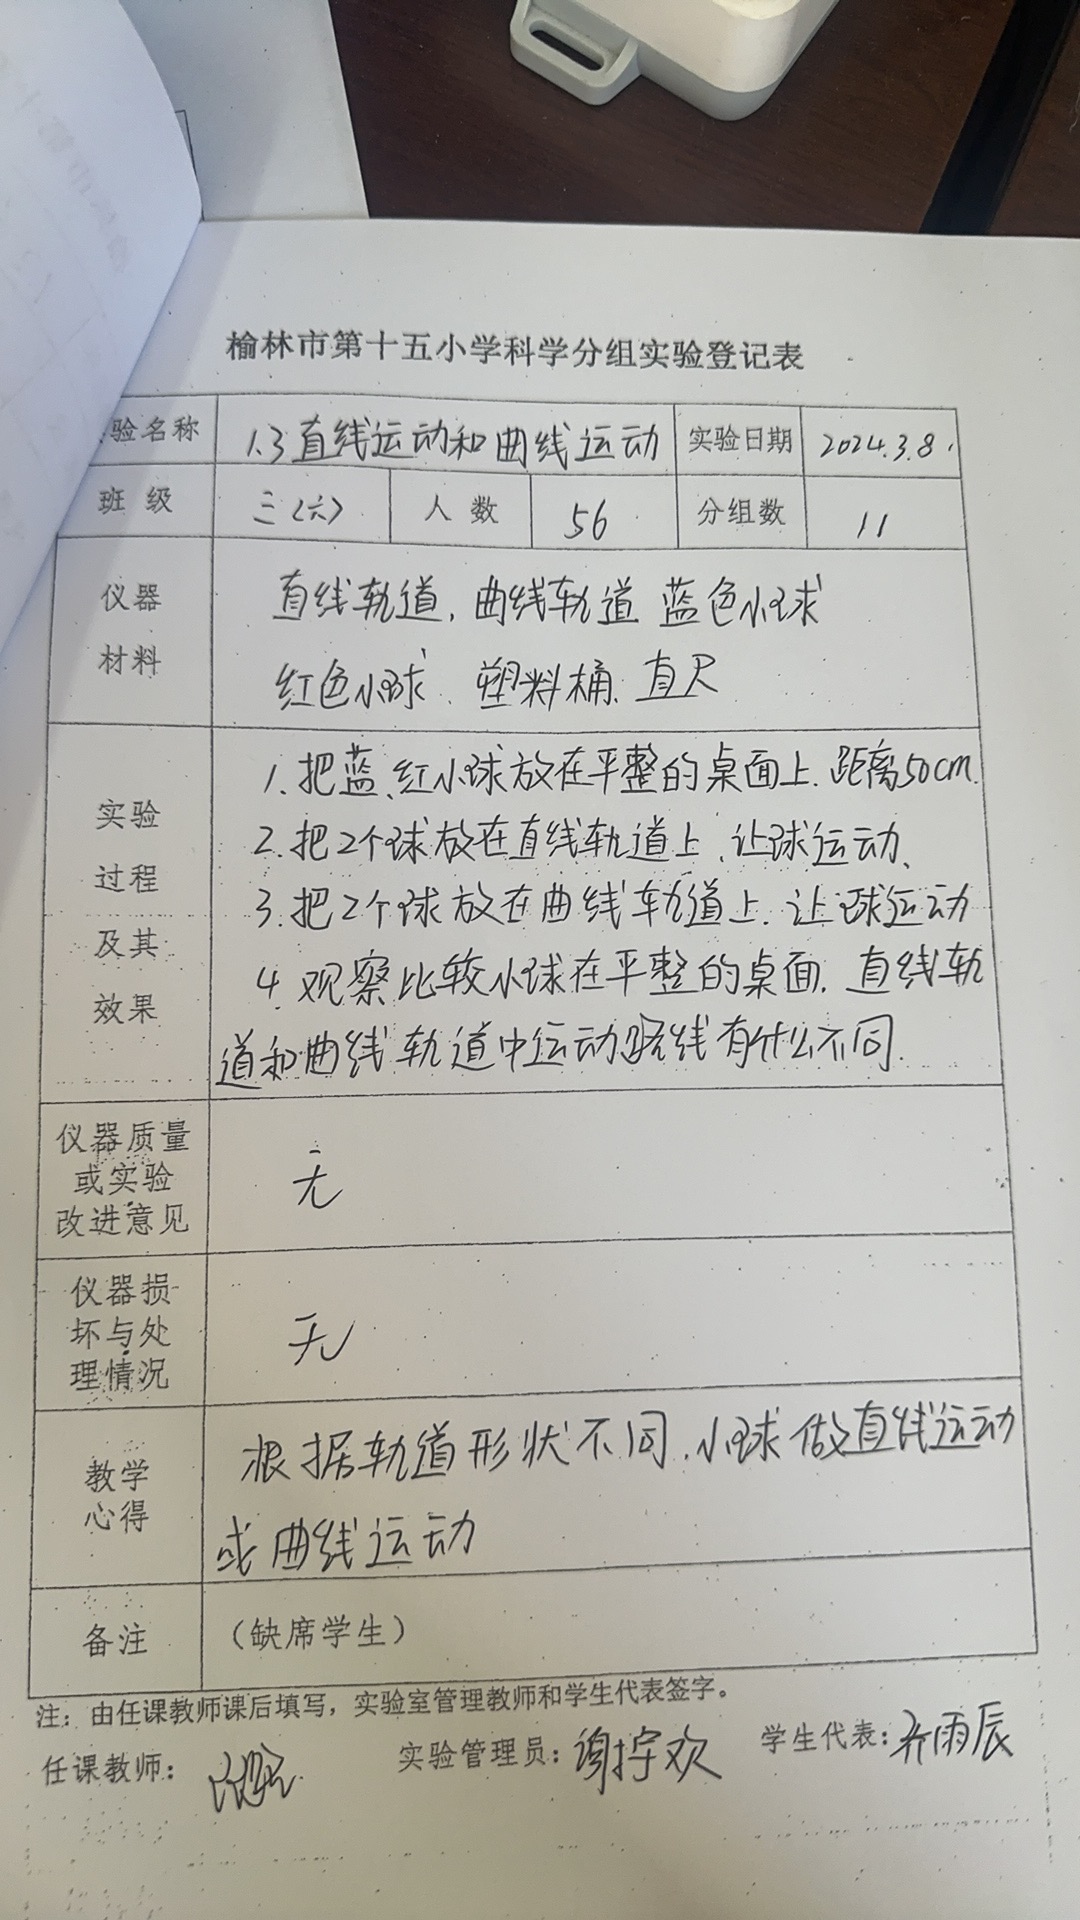 榆林市第十五小学科学分组实验登记表
验名称 1.3直线运动和曲线运动 实验日期 2024.3.8.
班级 三(六) 人数 56 分组数 11
仪器 直线轨道,曲线轨道 蓝色小球
材料 红色小球、塑料桶、直尺
1.把蓝、红小球放在平整的桌面上.距离50cm.
实验 2.把2个球放在直线轨道上,让球运动、
过程 3.把2个球放在曲线轨道上.让球运动
及其 4.观察比较小球在平整的桌面.直线轨
效果 道和曲线轨道中运动路线有什么不同.
仪器质量
或实验 无
改进意见
仪器损
坏与处 无
理情况
教学 根据轨道形状不同.小球做直线运动
心得 或曲线运动
备注 (缺席学生)
注:由任课教师课后填写,实验室管理教师和学生代表签字。
任课教师: 实验管理员: 学生代表:乔雨辰